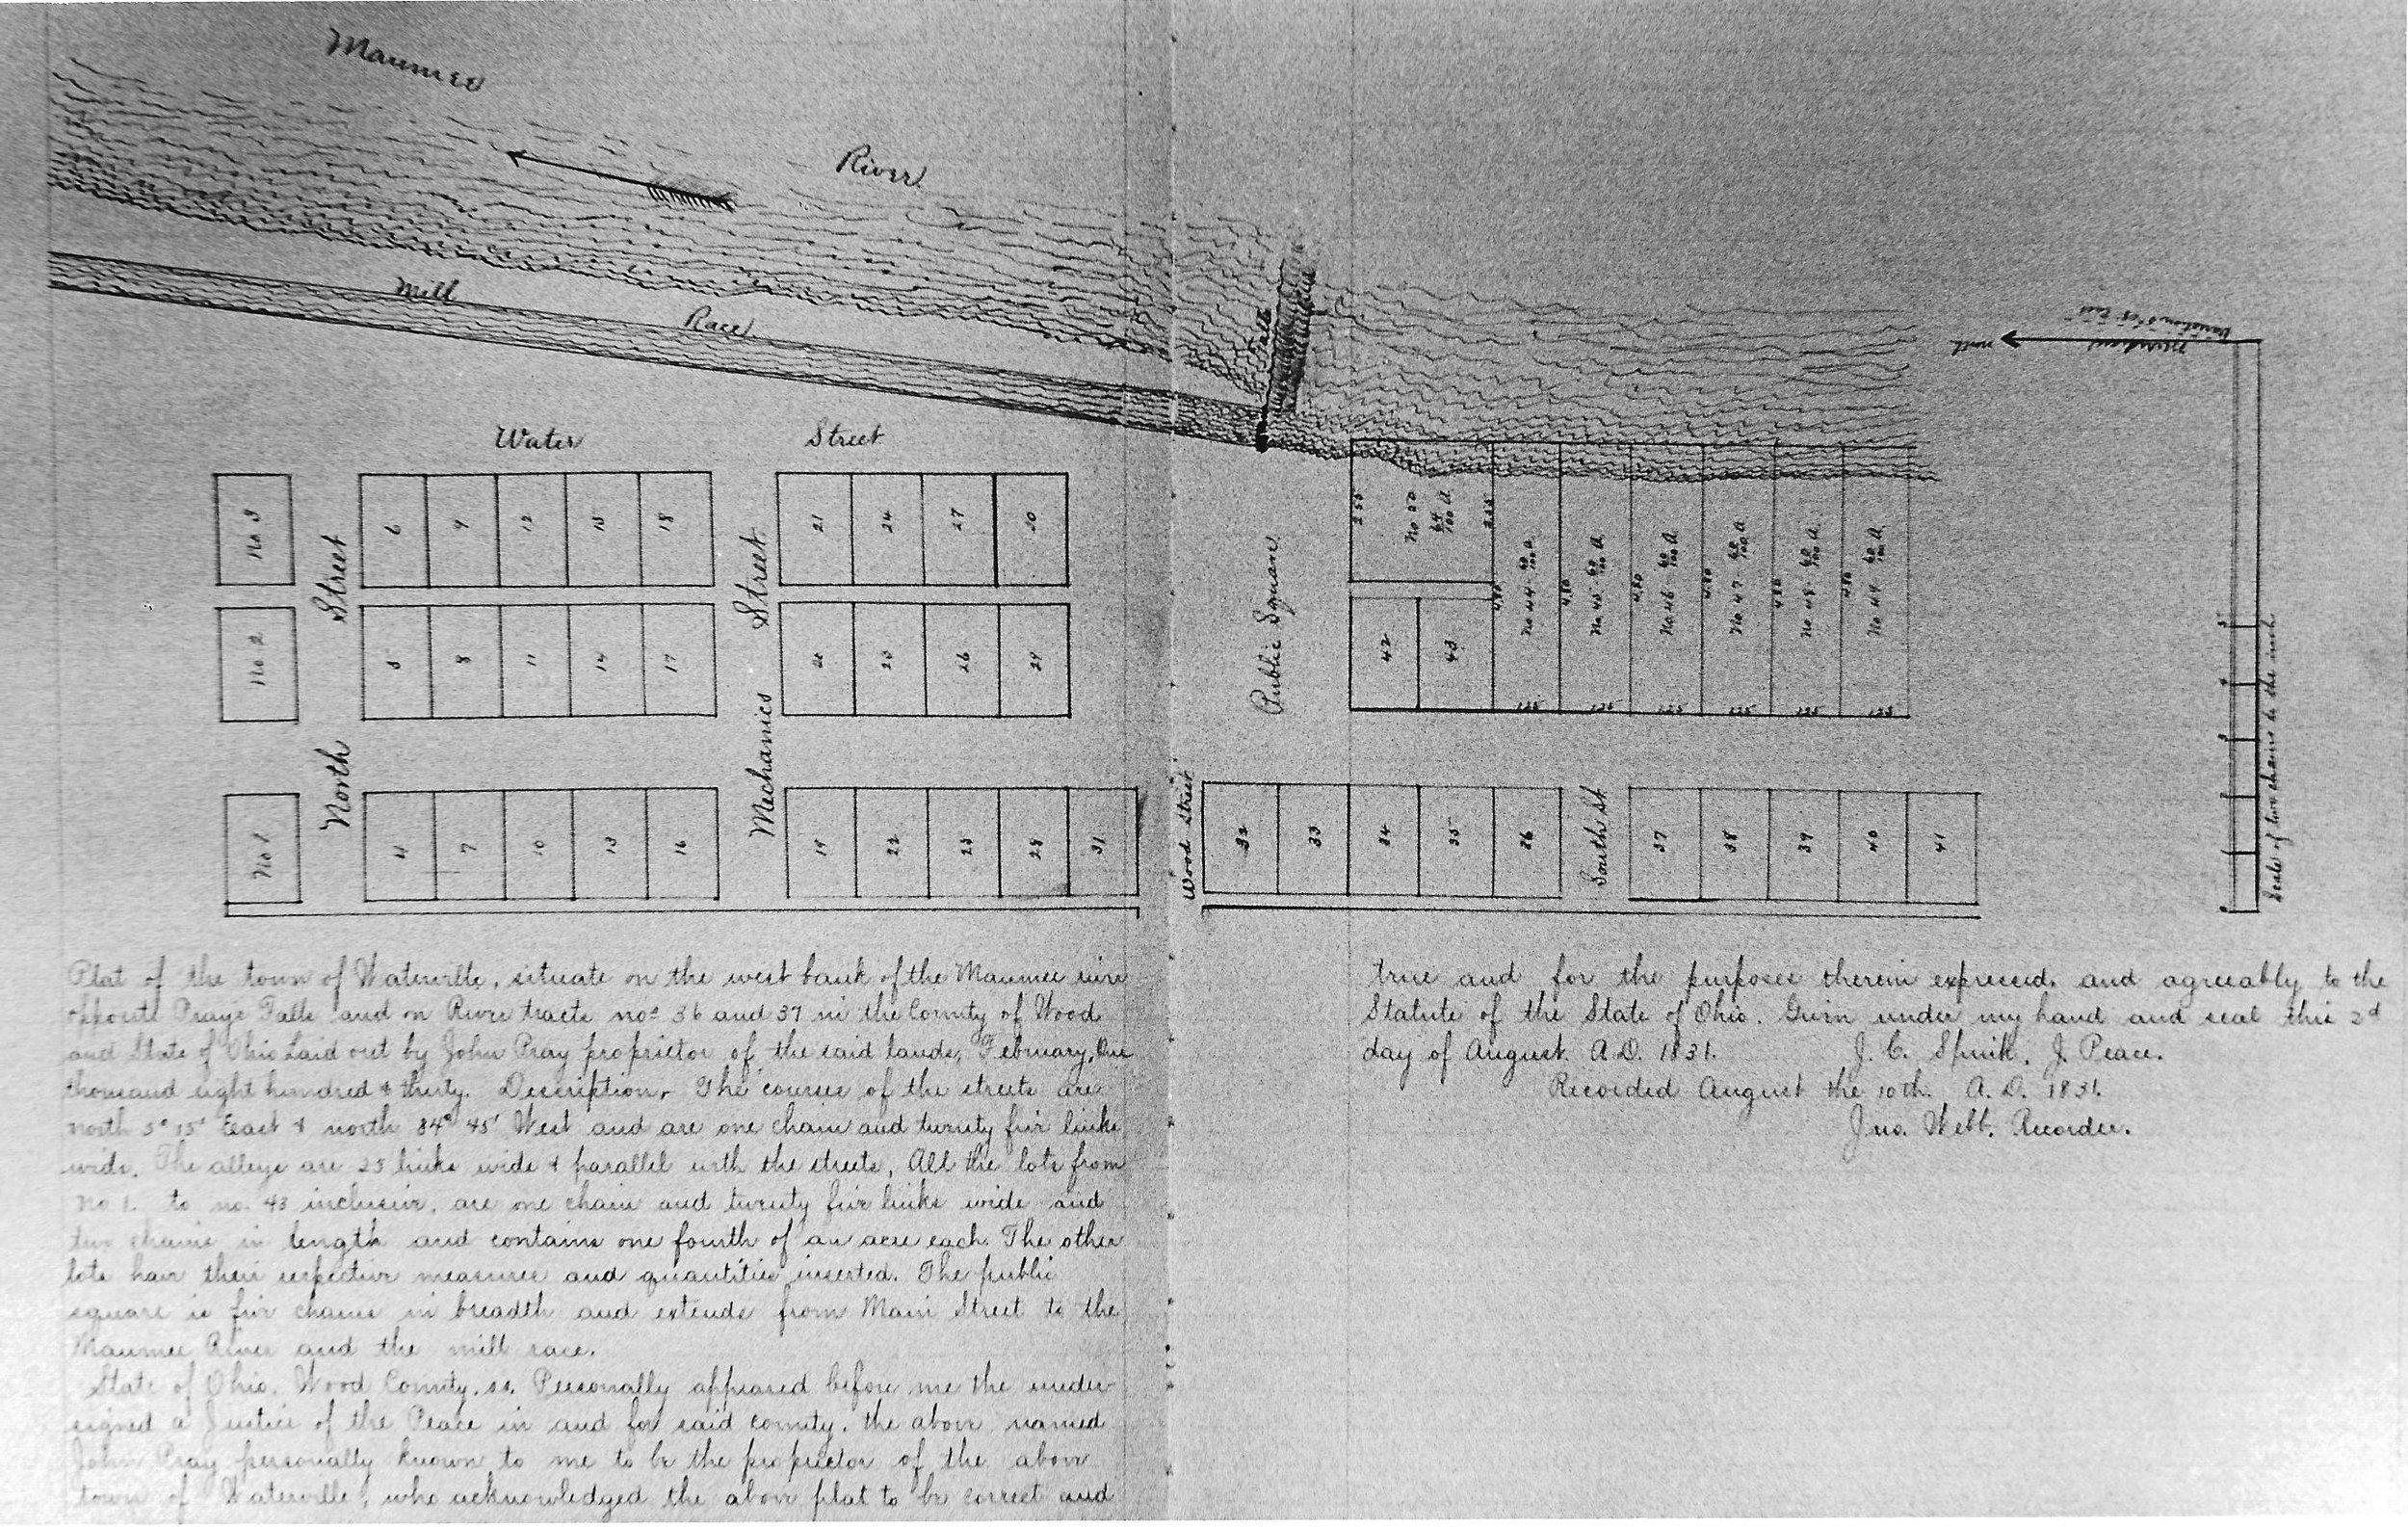 Maumee
River
Mill
Race
Falls
north
Meridian
Variation
East
Water Street
North Street
Mechanics Street
Public Square
Wood Street
South St
No 3
6
9
12
15
18
21
24
27
30
No 2
5
8
11
14
17
20
23
26
29
No 1
4
7
10
13
16
19
22
25
28
31
32
33
34
35
36
37
38
39
40
41
42
43
64/100 A
No 44 60/100 a
No 45 60/100 A
No 46 60/100 A
No 47 60/100 a
No 48 60/100 A
No 49 60/100 A
4,80
4,80
4,80
4,80
4,80
4,80
125
125
125
125
125
125
Scale of two chains to the inch
Plat of the town of Waterville, situate on the west bank of the Maumee
opposite Prays Falls and on River tracts nos 36 and 37 in the County of Wood
and State of Ohio Laid out by John Pray proprietor of the said lands, February, One
thousand eight hundred & thirty. Description. The courses of the streets are
north 5° 15' East & north 84° 45' West and are one chain and twenty five links
wide. The alleys are 25 links wide & parallel with the streets, All the lots from
no 1. to no. 43 inclusive, are one chain and twenty five links wide and
two chains in length and contains one fourth of an acre each. The other
lots have their respective measures and quantities inserted. The public
square is five chains in breadth and extends from Main Street to the
Maumee River and the mill race.
State of Ohio, Wood County, ss. Personally appeared before me the under
signed a Justice of the Peace in and for said county, the above named
John Pray personally known to me to be the proprietor of the above
town of Waterville, who acknowledged the above plat to be correct and
true and for the purposes therein expressed, and agreeably to the
Statute of the State of Ohio. Given under my hand and seal this 2d
day of August. A.D. 1831. J. C. Spink, J. Peace.
Recorded August the 10th. A.D. 1831.
Jno. Webb, Recorder.